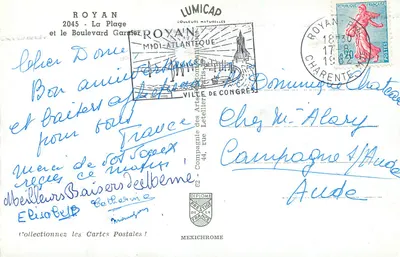 ROYAN
2045 - La Plage
et le Boulevard Garnier
LUMICAP
COULEURS NATURELLES
ROYAN
MIDI-ATLANTIQUE
VILLE DE CONGRÈS
ROYAN
18H30
17-8
19
CHARENTE
Cher Dom
Bon anniversaire
et baisers
pour vous
France
merci de vos vœux
reçus ce matin
Meilleurs Baisers de Mémé
Elisabeth
Catherine
Dominique Chateau
Chez Mr Alary
Campagne s/Aude
Aude
Collectionnez les Cartes Postales !
MEXICHROME